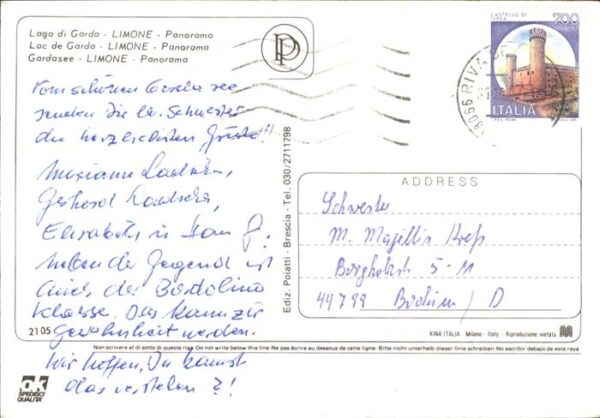 Lago di Garda - LIMONE - Panorama
Lac de Garda - LIMONE - Panorama
Gardasee - LIMONE - Panorama
PP
CASTELLO DI
IVREA
700
ITALIA
38066 RIVA DE
Vom schönen Gardasee
senden Dir lb. Schwester
die herzlichsten Grüße!!
Marianne
Gerhard
Elisabeth
neben der Gegend ist
auch der Bardolino
Klasse. Das kann zur
Gewohnheit werden.
Wir hoffen, Du kannst
das verstehen ?!
Ediz. Poiatti - Brescia - Tel. 030/2711798
ADDRESS
Schwester
M. Magellis
5-11
44799 Bochum / D
2105
KINA ITALIA Milano - Italy - Riproduzione vietata
Non scrivere al di sotto di questa riga Do not write below this line Ne pas écrire au dessous de cette ligne. Bitte nicht unterhalb dieser linie schreiben No escribir debajo de esta raya
ok
SPEDISCI
QUALITÀ